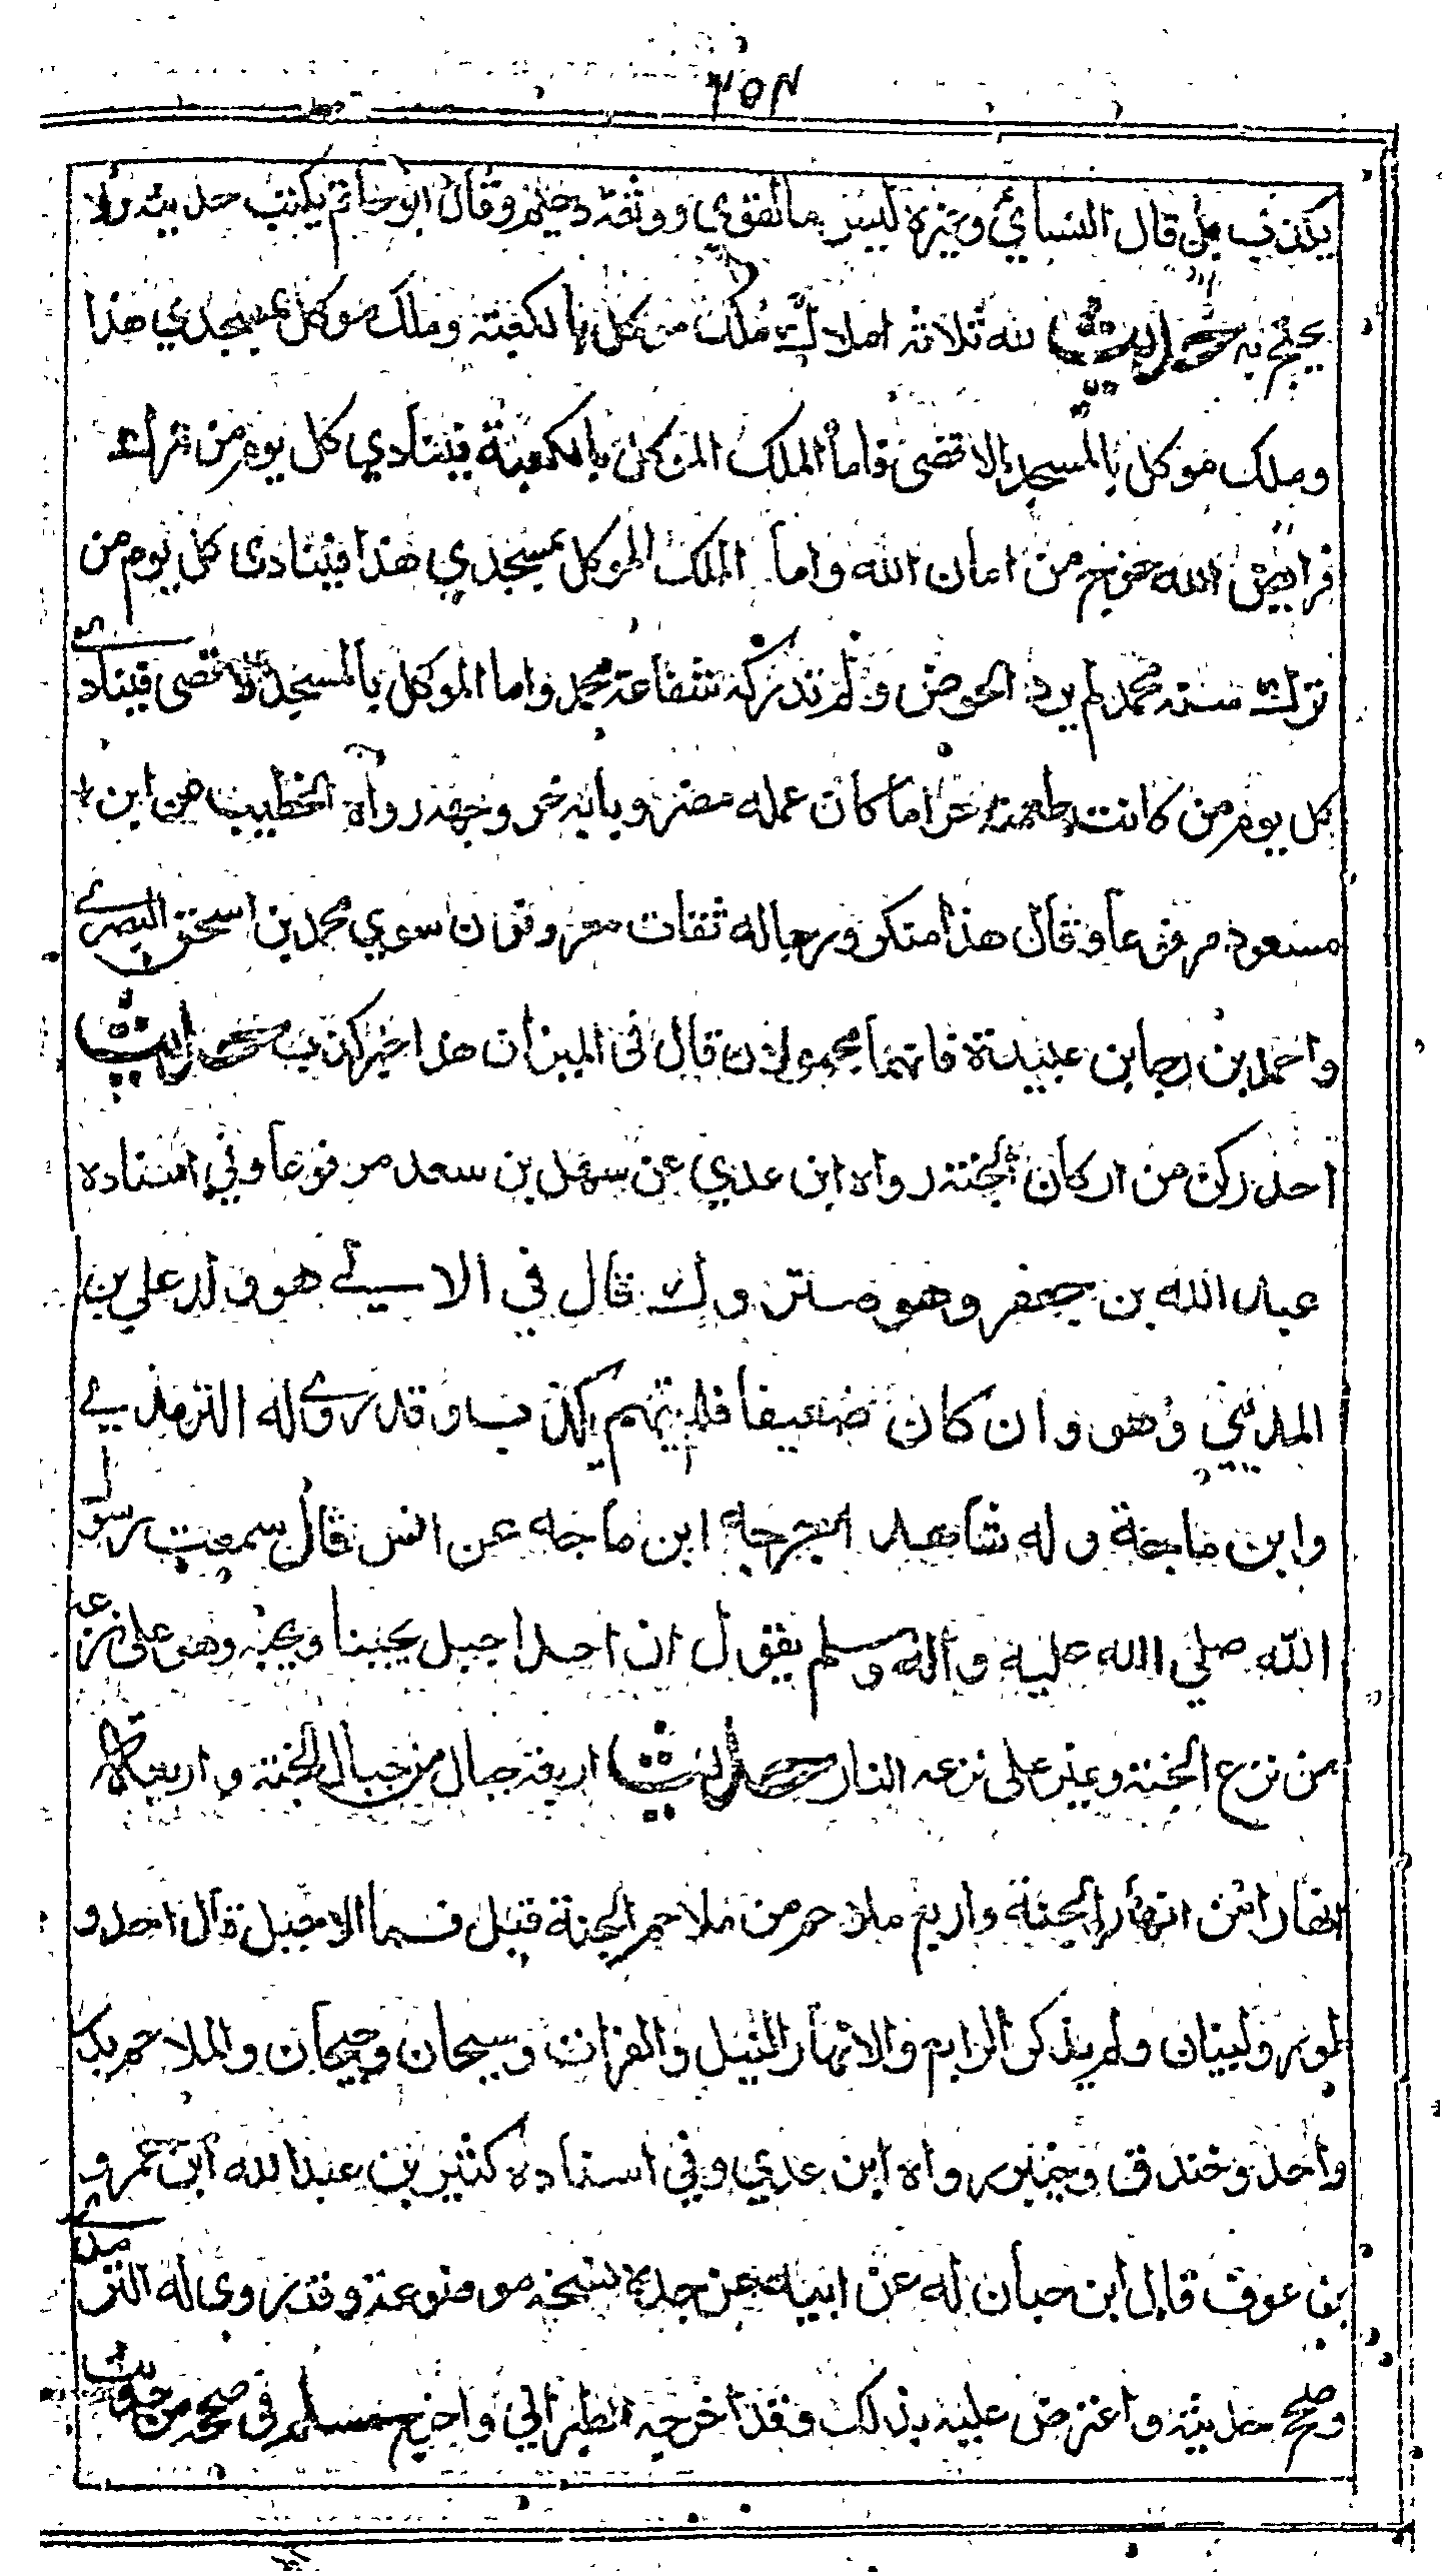 ٢٥٣
يكذب بل قال النسائي وغيره ليس بالقوي ووثقه دحيم وقال ابو حاتم يكتب حديثه ولا
يحتج به حديث لله ثلاثة املاك ملك موكل بالكعبة وملك موكل بمسجدي هذا
وملك موكل بالمسجد الاقصى فاما الملك الموكل بالكعبة فينادي كل يوم من ترك
فرايض الله خرج من امان الله واما الملك الموكل بمسجدي هذا فينادى كل يوم من
ترك سنة محمد لم يرد الحوض ولم تدركه شفاعة محمد واما الموكل بالمسجد الاقصى فينادي
كل يوم من كانت طعمته حراما كان عمله مضروبا به حر وجهه رواه الخطيب عن ابن
مسعود مرفوعا وقال هذا منكر ورجاله ثقات معروفون سوي محمد بن اسحق البصري
واحمد بن رجا بن عبيدة فانهما مجهولان قال في الميزان هذا خبر كذب حديث
احد ركن من اركان الجنة رواه ابن عدي عن سهل بن سعد مرفوعا وفي اسناده
عبد الله بن جعفر وهو متروك قال في الالي هو والد علي بن
المديني وهو وان كان ضعيفا فلم يتهم بكذب وقد روى له الترمذي
وابن ماجة وله شاهد اخرجه ابن ماجه عن انس قال سمعت رسول
الله صلي الله عليه وآله وسلم يقول ان احدا جبل يحبنا ونحبه وهو على ترعة
من ترع الجنة وعير على ترعه النار حديث اربعة جبال من جبال الجنة واربعة
انهار من انهار الجنة واربع ملاحم من ملاحم الجنة قيل فما الاجبل قال احد و
طور ولبنان ولم يذكر الرابع والانهار النيل والفرات وسيحان وجيحان والملاحم بدر
واحد وخندق وحنين رواه ابن عدي وفي اسناده كثير بن عبد الله ابن عمرو
بن عوف قال ابن حبان له عن ابيه عن جده نسخه موضوعة وقد روى له الترمذي
وصحح حديثه واعترض عليه بذلك وقد اخرجه الطبراني واخرج مسلم في صحيحه من حديث